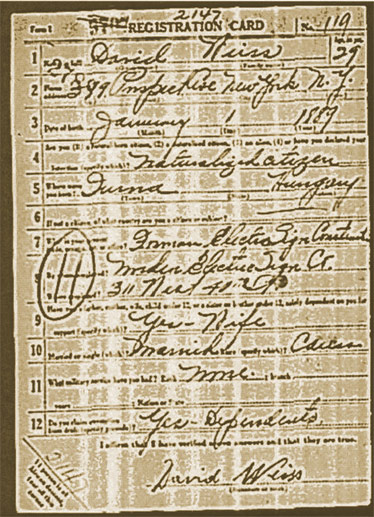 2147
Form 1 REGISTRATION CARD No. 119
1 David Weiss 29
(Family name) Age, in yrs.
2 389 Prospect Ave New York N.Y.
3 Date of birth January 1 1889
(Month) (Day) (Year)
Are you (1) a natural-born citizen, (2) a naturalized citizen, (3) an alien, (4) or have you declared your
4 intention (specify which)? Naturalized citizen
5 Where were you born? Turna Hungary
(Town)
6 If not a citizen, of what country are you a citizen or subject?
7 What is your Forman Electric Sign
8 By whom employed? Modern Electric Sign Co.
311 West 40
father, mother, wife, child under 12, or a sister or brother under 12, solely dependent on you for
9 support (specify which)? Yes - Wife
10 Married or single (which)? Married Race (specify which)? Caucasian
11 What military service have you had? Rank None branch
years Nation or State
12 Do you claim exemption from draft (specify grounds)? Yes - Dependents
I affirm that I have verified above answers and that they are true.
David Weiss
(Signature or mark)